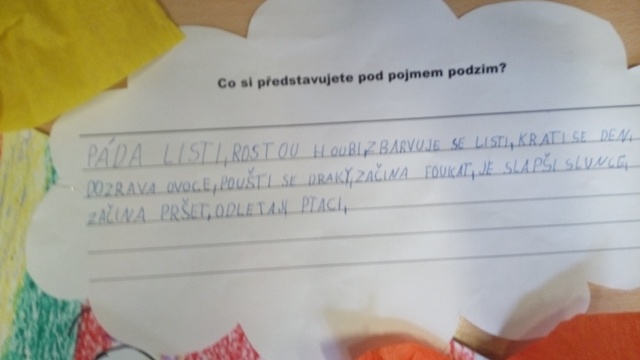 Co si představujete pod pojmem podzim?
PÁDA LISTI, ROSTOU HOUBI, ZBARVUJE SE LISTI, KRATI SE DEN,
DOZRAVA OVOCE, POUŠTI SE DRAKY, ZAČINA FOUKAT, JE SLAPŠI SLUNCE,
ZAČINA PRŠET, ODLETAJI PTACI,